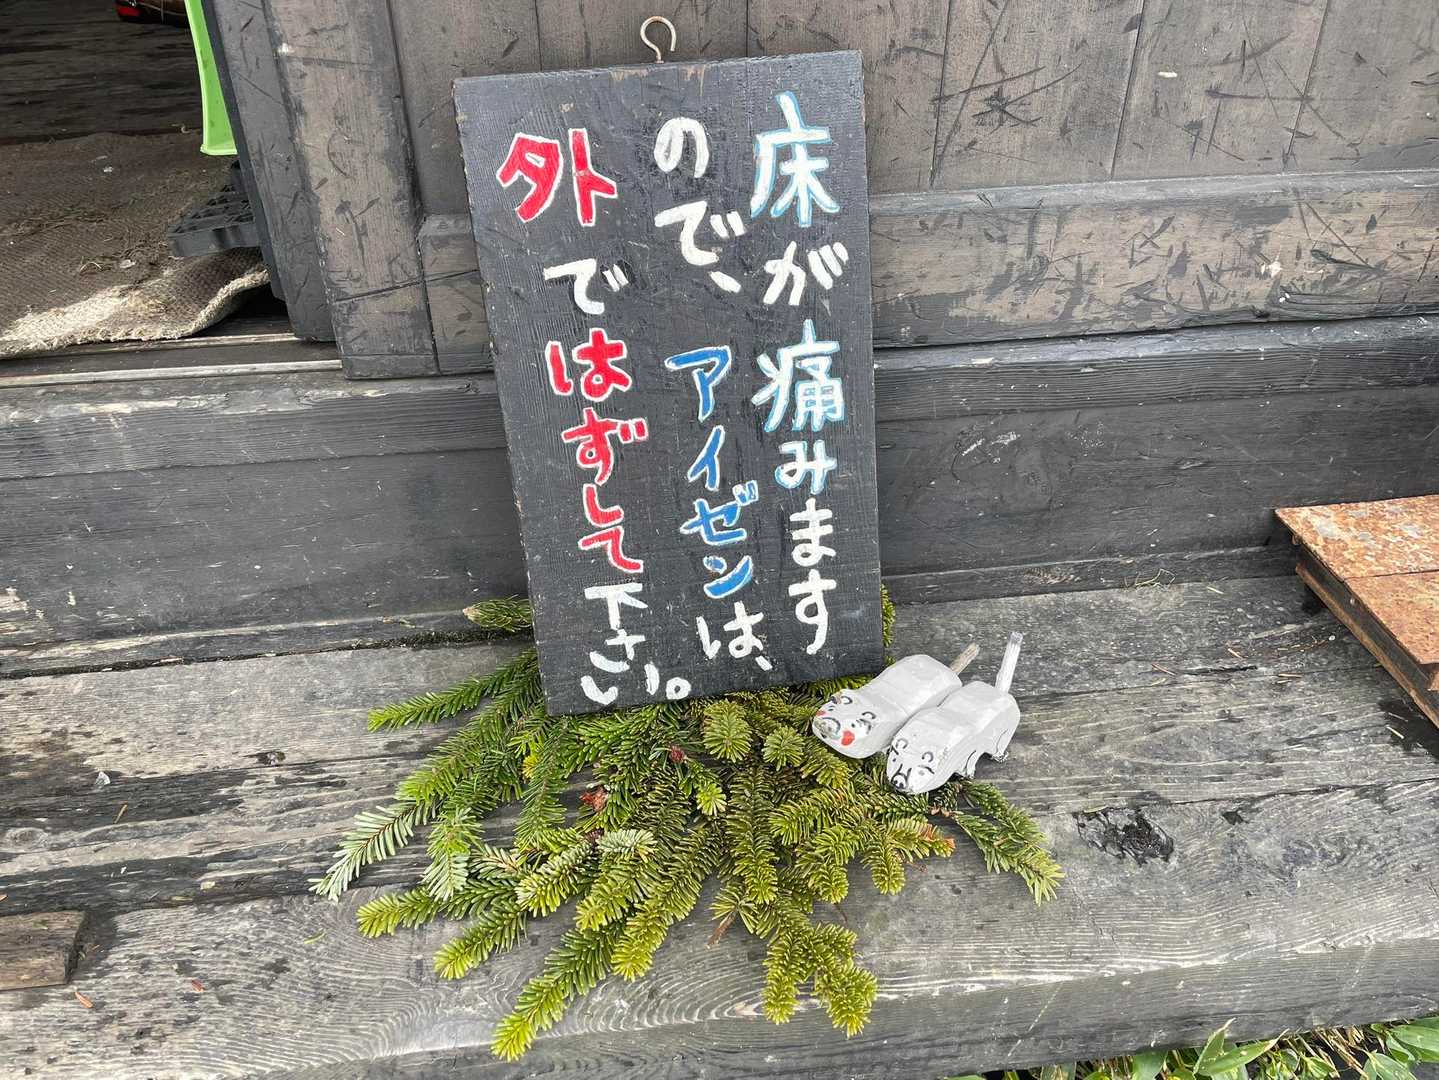 床が痛みます
ので、アイゼンは、
外ではずして下さい。